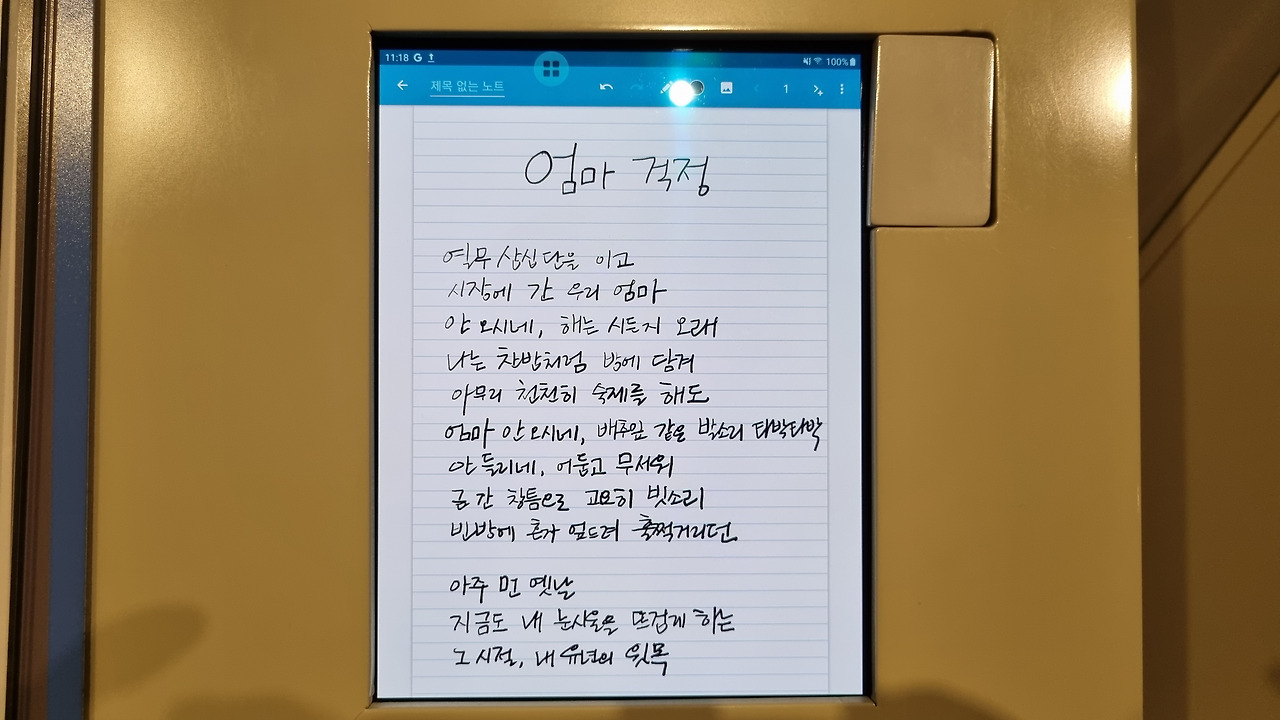 11:18 G
100%
제목 없는 노트
1
엄마 걱정
열무 삼십단을 이고
시장에 간 우리 엄마
안 오시네, 해는 시든지 오래
나는 찬밥처럼 방에 담겨
아무리 천천히 숙제를 해도
엄마 안 오시네, 배추잎 같은 발소리 타박타박
안 들리네, 어둡고 무서워
금 간 창틈으로 고요히 빗소리
빈방에 혼자 엎드려 훌쩍거리던
아주 먼 옛날
지금도 내 눈시울을 뜨겁게 하는
그 시절, 내 유년의 윗목